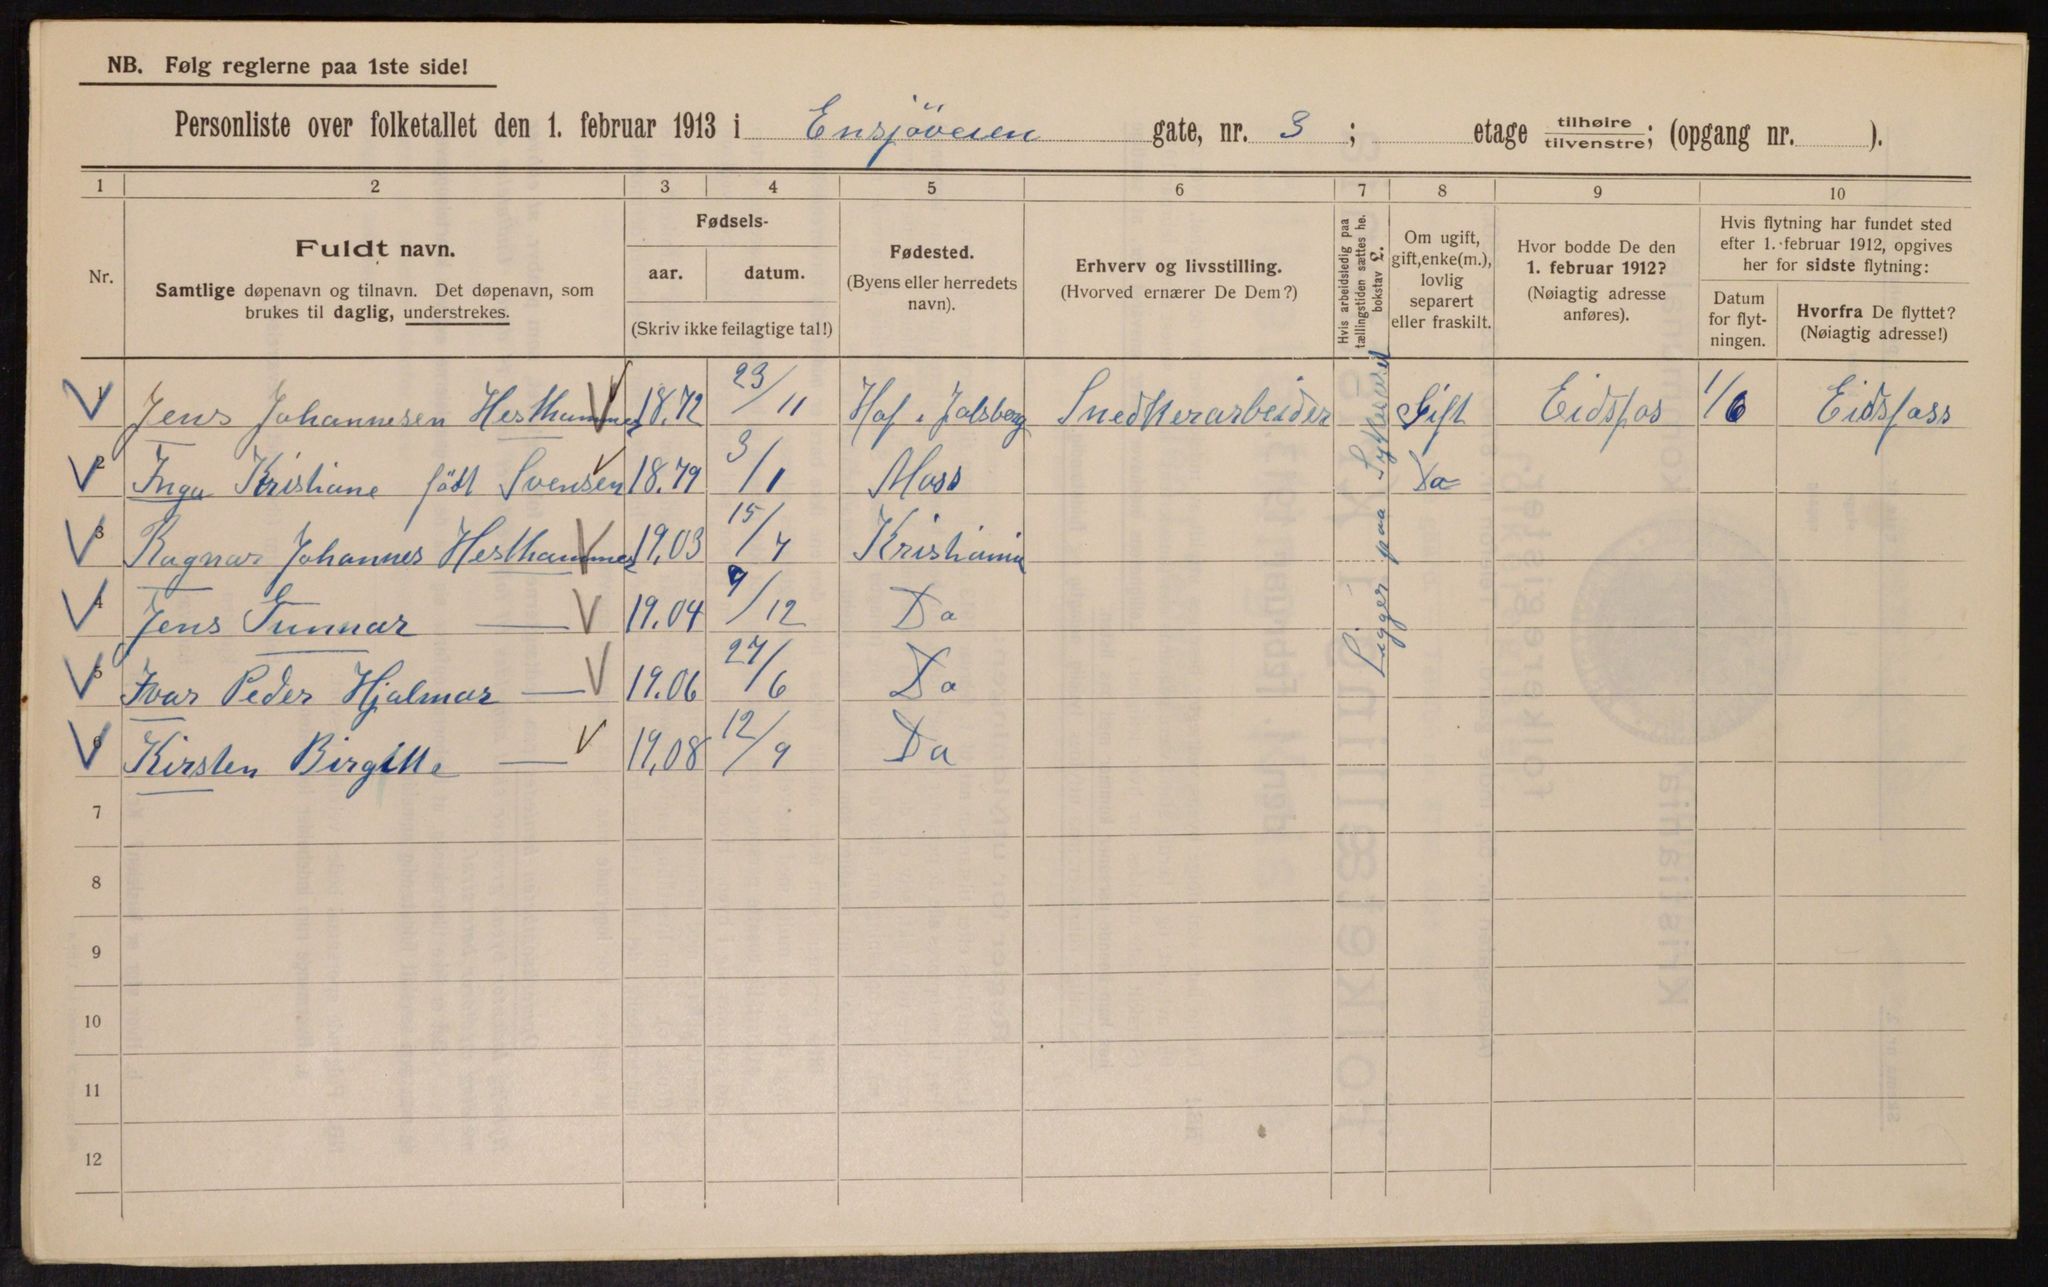 NB. Følg reglerne paa 1ste side!
Personliste over folketallet den 1. februar 1913 i Ensjöveien gate, nr. 3 ; etage tilhøire/tilvenstre; (opgang nr. ).
1 2 3 4 5 6 7 8 9 10
Nr.
Fuldt navn.
Samtlige døpenavn og tilnavn. Det døpenavn, som
brukes til daglig, understrekes.
Fødsels-
aar. datum.
(Skriv ikke feilagtige tal!)
Fødested.
(Byens eller herredets
navn).
Erhverv og livsstilling.
(Hvorved ernærer De Dem?)
Hvis arbeidsledig paa
tællingstiden sættes he.
bokstav L.
Om ugift,
gift, enke(m.),
lovlig
separert
eller fraskilt.
Hvor bodde De den
1. februar 1912?
(Nøiagtig adresse
anføres).
Hvis flytning har fundet sted
efter 1. februar 1912, opgives
her for sidste flytning:
Datum
for flyt-
ningen.
Hvorfra De flyttet?
(Nøiagtig adresse!)
1 Jens Johannesen Hesthammer 18.72 23/11 Hof i Jalsberg Snedkerarbeider Gift Eidsfos 1/6 Eidsfoss
2 Inga Kristiane födt Svensen 18.79 3/1 Moss Do
3 Ragnar Johannes Hesthammer 19.03 15/7 Kristiania
4 Jens Gunnar — 19.04 9/12 Do
5 Ivar Peder Hjalmar — 19.06 27/6 Do
6 Kirsten Birgitte — 19.08 12/9 Do
Ligger paa
7
8
9
10
11
12